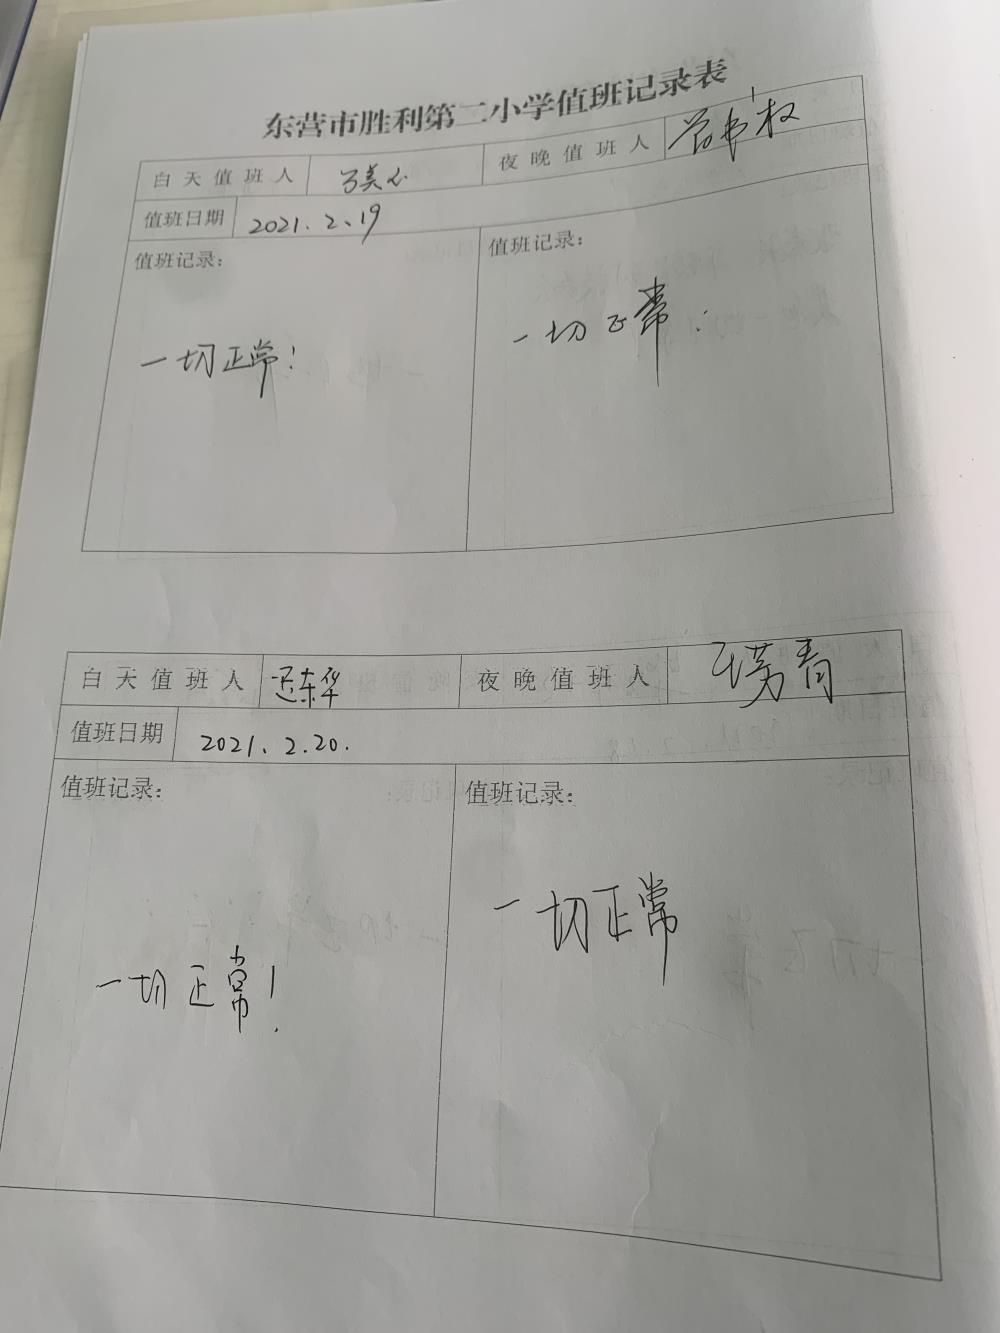 东营市胜利第二小学值班记录表
白天值班人 夜晚值班人
值班日期 2021.2.19
值班记录： 值班记录：
一切正常！ 一切正常.
白天值班人 迟东华 夜晚值班人
值班日期 2021.2.20.
值班记录： 值班记录：
一切正常！ 一切正常